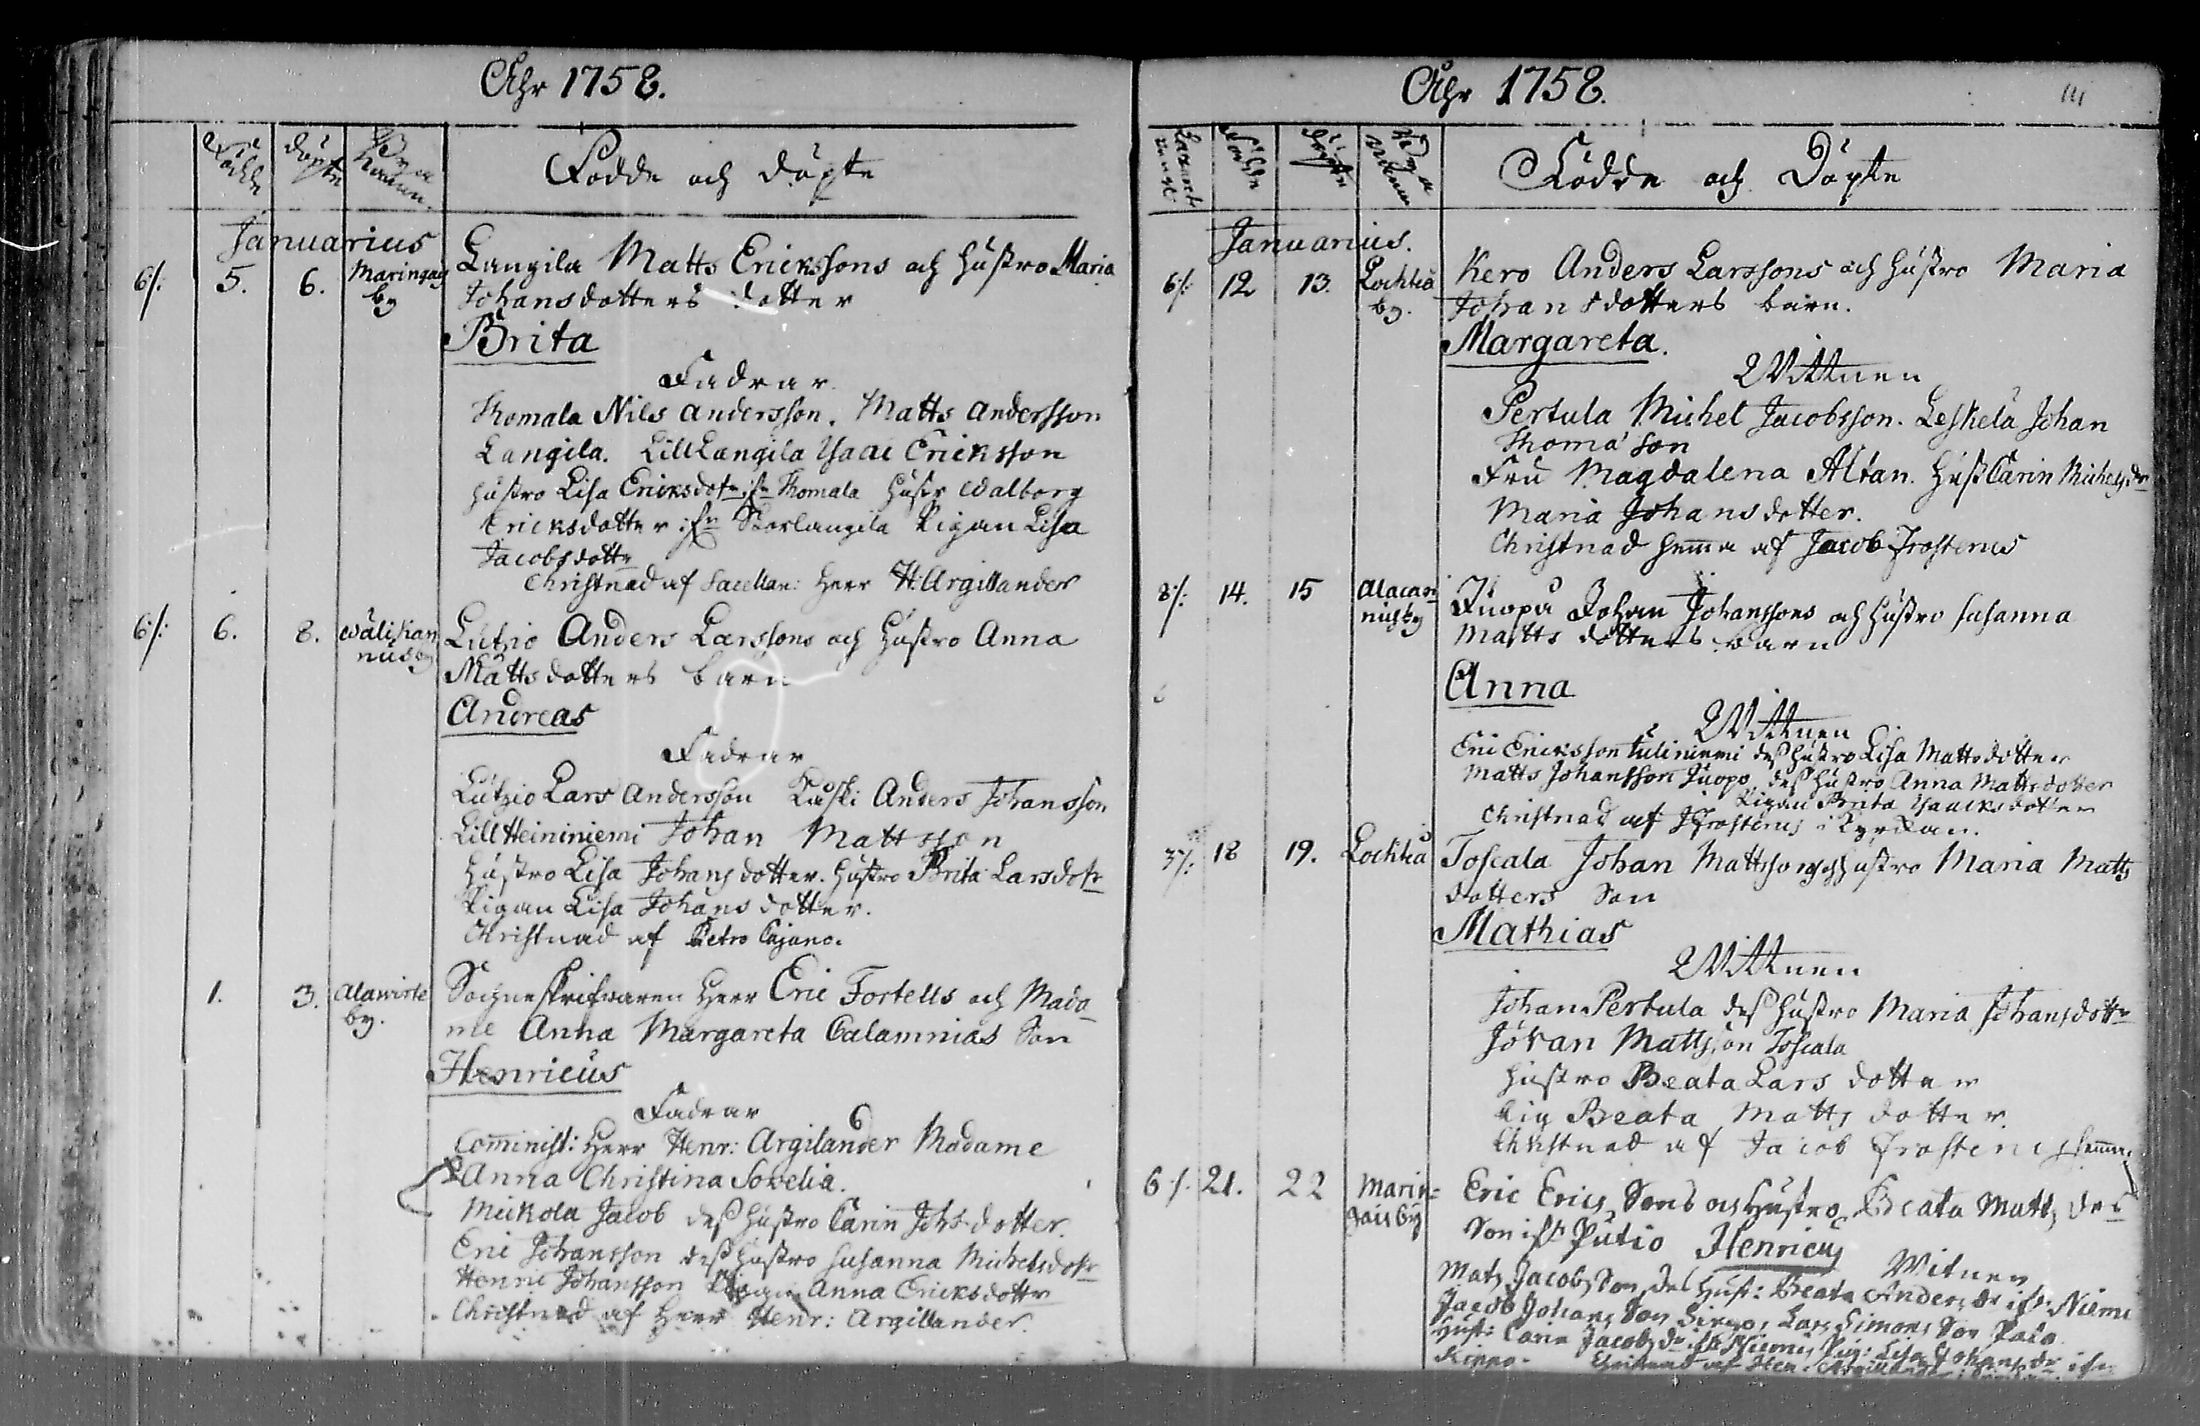 Åhr 1758.
Födde
döpte
Byanamn.
Födde och döpte
Januarius
6/: 5. 6. Maringais by
Langila Matts Erickssons och hustro Maria
Johansdotters dotter
Brita
Fadrar
Thomala Nils Andersson. Matts Andersson
Langila. Lill Langila Isaac Ericksson
hustro Lisa Ericksdotr ifr Thomala hustr Walborg
Ericksdotter ifr Storlangila Pigan Lisa
Jacobsdottr
Christnad af Sacellan: Herr H: Argillander
6/: 6. 8. Wälikannus by
Lutzio Anders Larssons och hustro Anna
Mattsdotters barn
Andreas
Fadrar
Lutzio Lars Andersson Kaski Anders Johansson
Lill Heininiemi Johan Mattsson
hustro Lisa Johansdotter. hustro Brita Larsdotr
Pigan Lisa Johansdotter.
Christnad af Petro Cajano.
1. 3. Alawirte by.
Sochneskrifwaren Herr Eric Fortells och Mada
me Anna Margareta Calamnias Son
Henricus
Fadrar
Cominist: Herr Henr: Argilander Madame
Anna Christina Sovelia.
Mickola Jacob dess hustro Carin Johsdotter.
Eric Johansson dess hustro Susanna Michelsdotr
Henric Johansson Pigan Anna Ericksdottr
Christnad af Herr Henr: Argillander.
Åhr 1758.
111
Födde
Döpte
Bya Namn
Födde och Döpte
Januarius.
6/: 12 13. Lochteå by.
Kero Anders Larssons och hustro Maria
Johansdotters barn.
Margareta.
Wittnen
Pertula Michel Jacobsson. Leskelä Johan
Thomasson
Fru Magdalena Altan. Hust Carin Michelsdr
Maria Johansdotter.
Christnad hemma af Jacob Frosterus
8/: 14. 15 Alacannus by
Juopa Johan Johanssons och hustro Susanna
Mattsdotters barn
Anna
Wittnen
Eric Ericksson Tuliniemi dess hustro Lisa Mattsdotter
Matts Johansson Juopo, dess hustro Anna Mattsdotter
Pigan Brita Isaacksdotter
Christnad af J Frosterus i Kyrkan.
3/: 18 19. Lochteå
Toscala Johan Mattssons och hustro Maria Matts
dotters Son
Mathias
Wittnen
Johan Pertula dess hustro Maria Johansdottr
Johan Mattsson Toscala
hustro Beata Larsdotter
Pig Beata Mattsdotter.
Christnad af Jacob Frosterus hemma
6/. 21. 22 Maringais by
Eric Ericssons och Hustro Beata Matts drs
Son ifr Putio Henricus
Witnen
Mats Jacobsson, des Hust: Beata Anders dr ifr Niemi
Jacob Johansson Sirgo, Lars Simonsson Palo
Hust: Carin Jacobsdr ifr Niemi, Pig: Lisa Johansdr ifr
Kippo. Christnad af Hen: Argillander